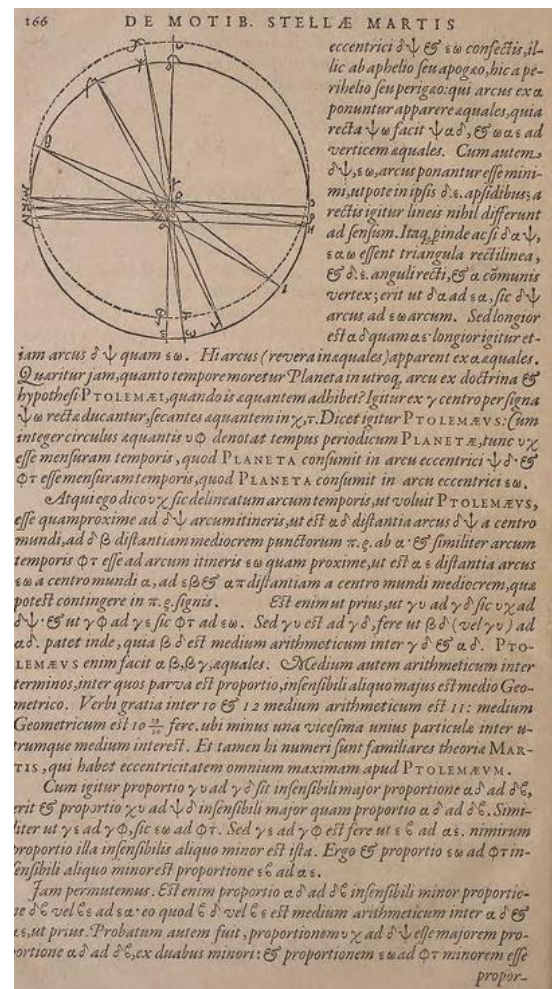 166 DE MOTIB. STELLÆ MARTIS
eccentrici δψ & εω confectis, il-
lic ab aphelio seu apogæo, hic a pe-
rihelio seu perigæo: qui arcus ex α
ponuntur apparere æquales, quia
recta ψω facit ψαδ, & ωαε ad
verticem æquales. Cum autem
δψ, εω, arcus ponantur esse mini-
mi, utpote in ipsis δ.ε. apsidibus; a
rectis igitur lineis nihil differunt
ad sensum. Itaq; pinde ac si δαψ,
εαω essent triangula rectilinea,
& δ.ε. anguli recti, & α cōmunis
vertex; erit ut δα ad εα, sic δψ
arcus ad εω arcum. Sed longior
est αδ quam αε· longior igitur et-
iam arcus δψ quam εω. Hi arcus (revera inæquales) apparent ex α æquales.
Quæritur jam, quanto tempore moretur Planeta in utroq; arcu ex doctrina &
hypothesi PTOLEMÆI, quando is æquantem adhibet? Igitur ex γ centro per signa
ψω rectæ ducantur, secantes æquantem in χ, τ. Dicet igitur PTOLEMÆVS: Cum
integer circulus æquantis υφ denotat tempus periodicum PLANETÆ, tunc υχ
esse mensuram temporis, quod PLANETA consumit in arcu eccentrici ψδ· &
φτ esse mensuram temporis, quod PLANETA consumit in arcu eccentrici εω.
Atqui ego dico υχ sic delineatum arcum temporis, ut voluit PTOLEMÆVS,
esse quamproxime ad δψ arcum itineris, ut est αδ distantia arcus δψ a centro
mundi, ad δβ distantiam mediocrem punctorum π.ϱ. ab α· & similiter arcum
temporis φτ esse ad arcum itineris εω quam proxime, ut est αε distantia arcus
εω a centro mundi α, ad εβ & απ distantiam a centro mundi mediocrem, quæ
potest contingere in π.ϱ. signis. Est enim ut prius, ut γυ ad γδ sic υχ ad
δψ· & ut γφ ad γε sic φτ ad εω. Sed γυ est ad γδ, fere ut βδ (vel γυ) ad
αδ. patet inde, quia βδ est medium arithmeticum inter γδ & αδ. PTO-
LEMÆVS enim facit αβ, βγ, æquales. Medium autem arithmeticum inter
terminos, inter quos parva est proportio, insensibili aliquo majus est medio Geo-
metrico. Verbi gratia inter 10 & 12 medium arithmeticum est 11: medium
Geometricum est 10 fere. ubi minus una vicesima unius particulæ inter u-
trumque medium interest. Et tamen hi numeri sunt familiares theoriæ MAR-
TIS, qui habet eccentricitatem omnium maximam apud PTOLEMÆVM.
Cum igitur proportio γυ ad γδ sit insensibili major proportione αδ ad δϐ,
erit & proportio χυ ad ψδ insensibili major quam proportio αδ ad δϐ. Simi-
liter ut γε ad γφ, sic εω ad φτ. Sed γε ad γφ est fere ut εϐ ad αε. nimirum
proportio illa insensibilis aliquo minor est ista. Ergo & proportio εω ad φτ in-
sensibili aliquo minor est proportione εϐ ad αε.
Jam permutemus. Est enim proportio αδ ad δϐ insensibili minor proportio-
ne δϐ vel ϐε ad εα· eo quod ϐδ vel ϐε est medium arithmeticum inter αδ &
αε, ut prius. Probatum autem fuit, proportionem υχ ad δψ esse majorem pro-
portione αδ ad δϐ, ex duabus minori: & proportionem εω ad φτ minorem esse
propor-